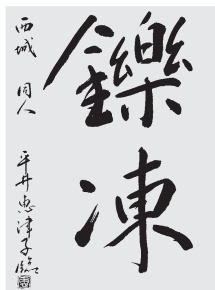 鑠凍
西城 同人 平井恵津子臨